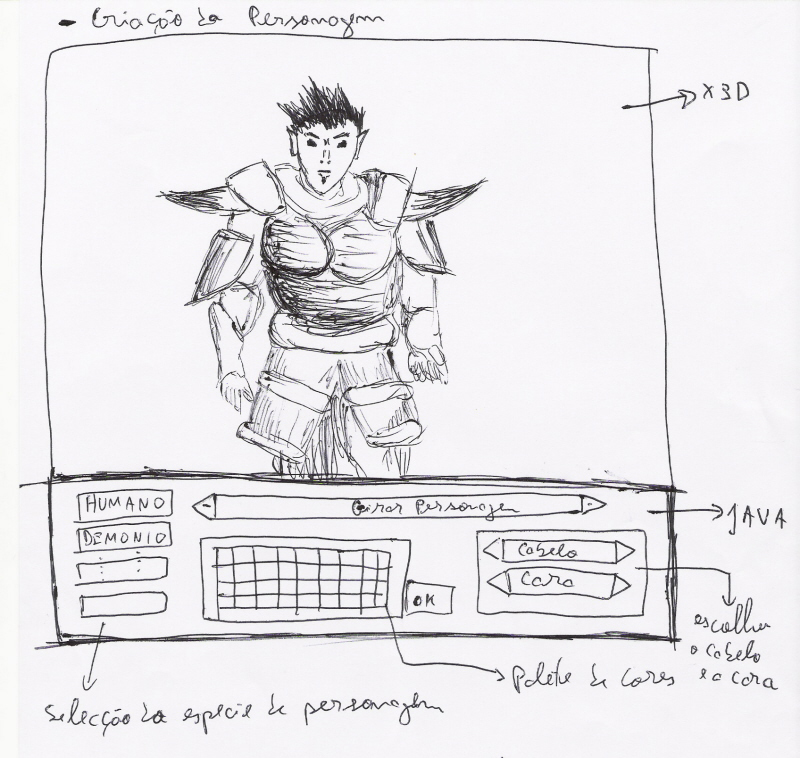 - Criação da Personagem
X3D
HUMANO
Girar Personagem
JAVA
DEMONIO
Cabelo
Cara
OK
escolher
o cabelo
e a cara
Palete de Cores
Selecção da espécie de personagem